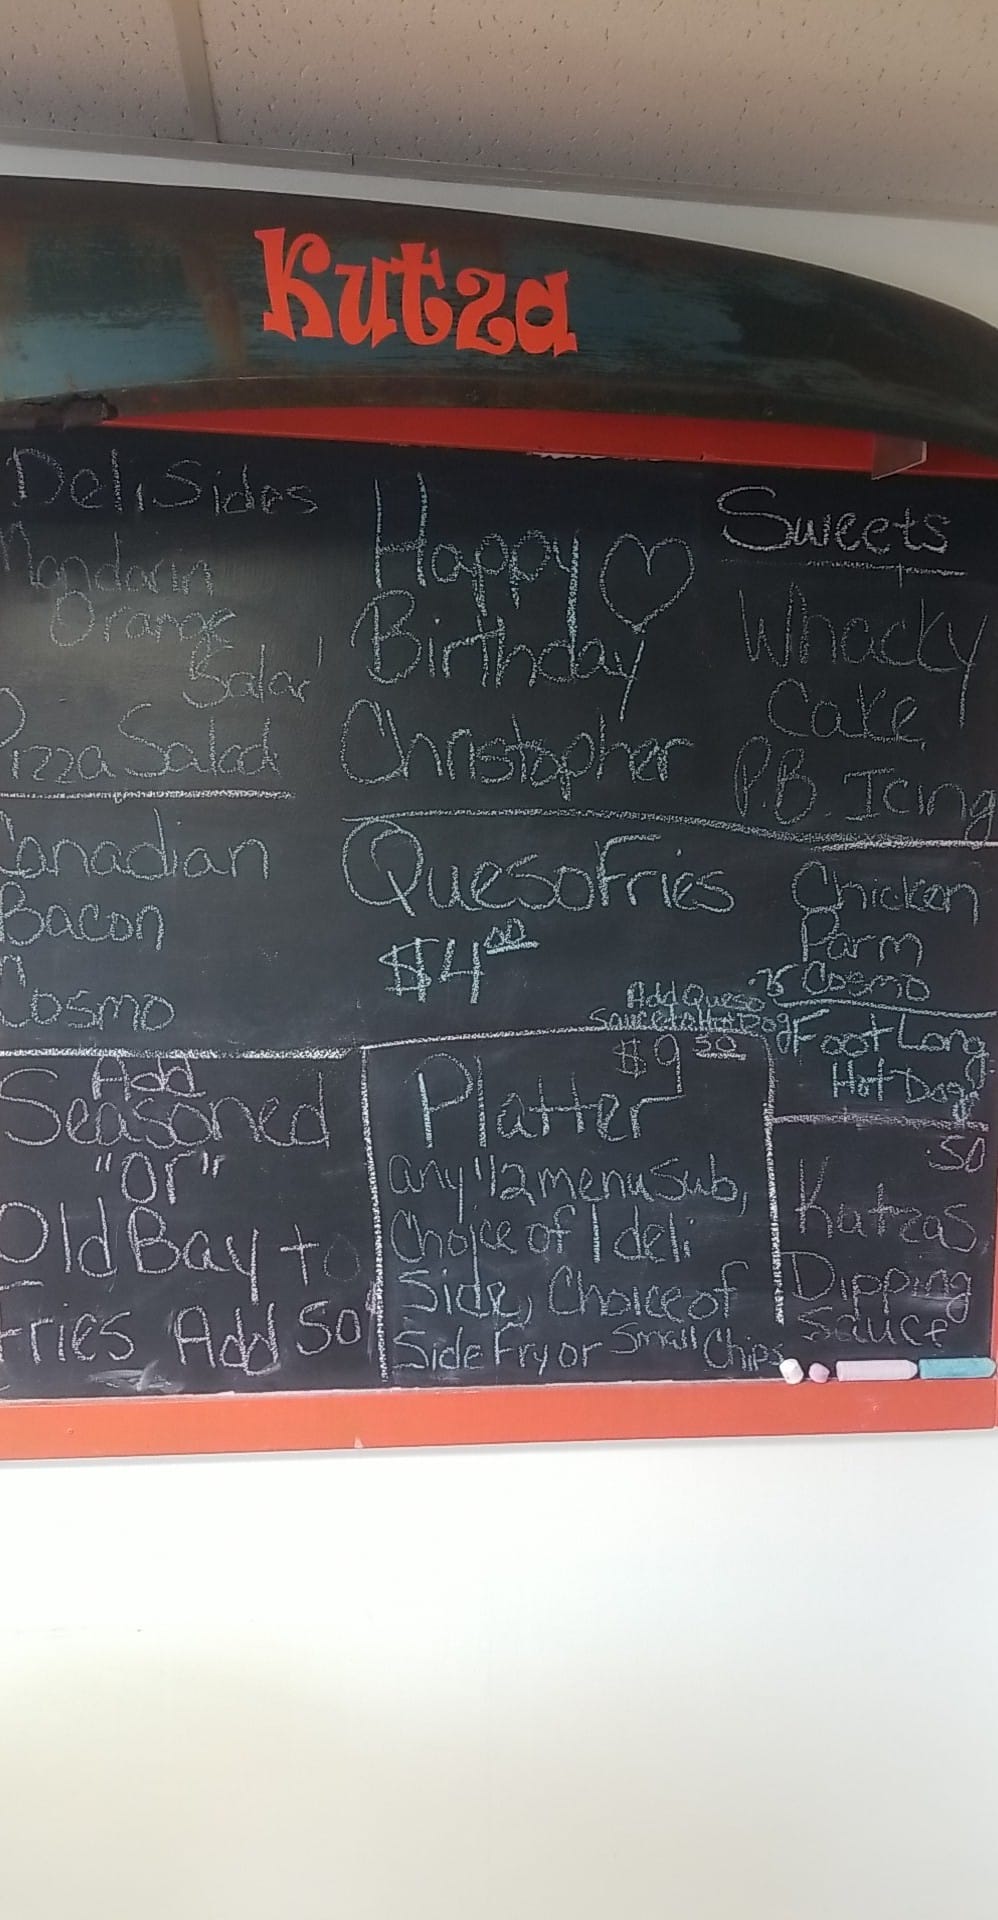 Kutza
Deli Sides
Mandarin
Orange
Salad
Pizza Salad
Canadian
Bacon
Cosmo
Add
Seasoned
"Or"
Old Bay to
Fries Add 50¢
Happy
Birthday
Christopher
Queso Fries
$4.00
Add Queso
Sauce to Hot Dog
$9.50
Platter
any 1/2 menu Sub,
Choice of 1 deli
Side, Choice of
Side Fry or Small Chips
Sweets
Whacky
Cake
P.B. Icing
Chicken
Parm
Cosmo
Foot Long
Hot Dog
.50
Katzas
Dipping
Sauce